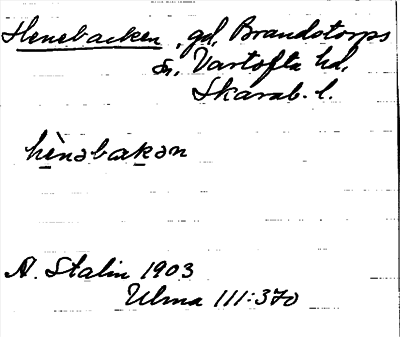 Henebacken, gd, Brandstorps
sn, Vartofta hd,
Skarab. l.
hènəbakən
A. Stalin 1903
Ulma 111:370